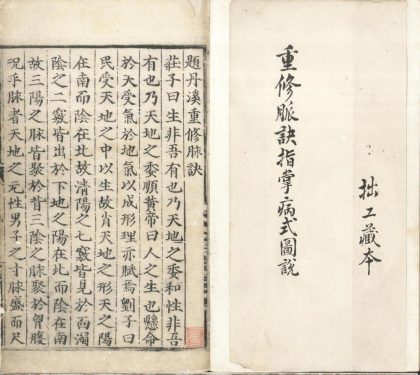 拙工藏本
重修脈訣指掌病式圖說
題丹溪重修脉訣
莊子曰生非吾有也乃天地之委和性非吾
有也乃天地之委順黃帝曰人之生也懸命
於天受氣於地氣以成形理亦賦焉劉子曰
民受天地之中以生故肖天地之形天之陽
在南而陰在北故清陽之七竅皆見於面濁
陰之二竅皆出於下地之陽在北而陰在南
故三陽之脉皆聚於背三陰之脉聚於胷腹
况乎脉者天地之元性男子之寸脉盛而尺